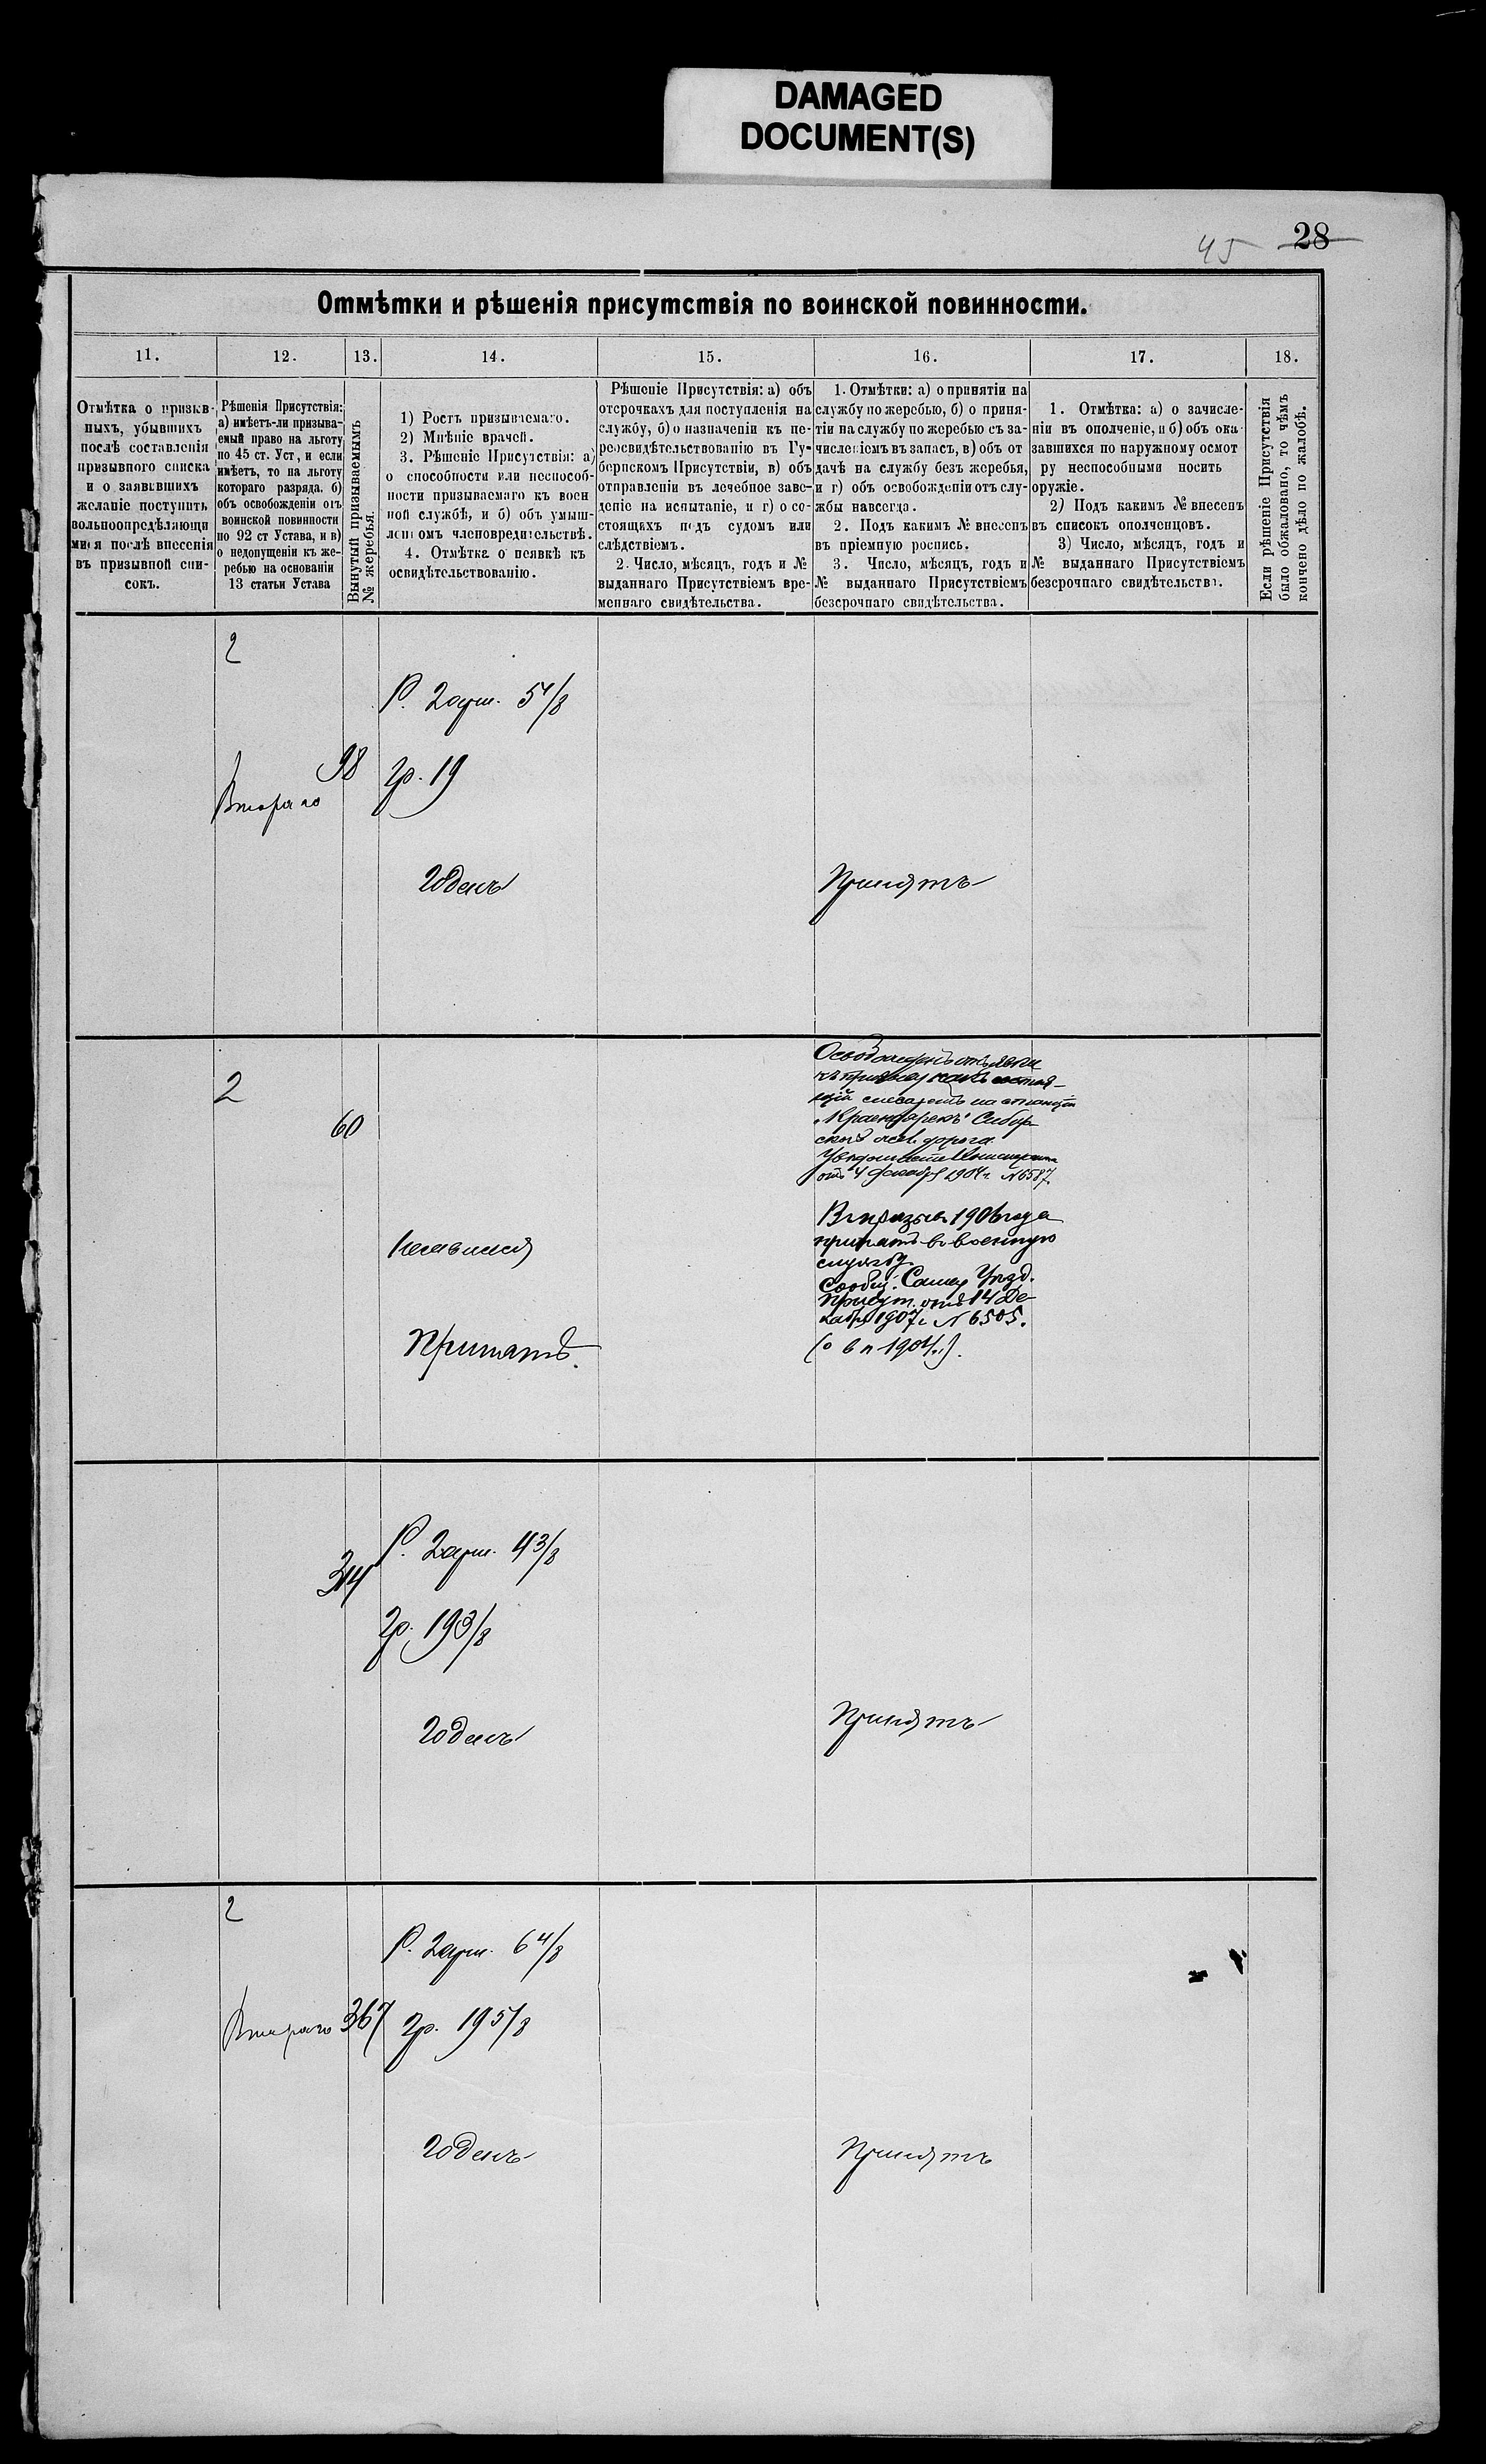 DAMAGED
DOCUMENT(S)
45 28
Отмѣтки и рѣшенія присутствія по воинской повинности.
11. 12. 13. 14. 15. 16. 17. 18.
Отмѣтка о призыв-
ныхъ, убывшихъ
послѣ составленія
призывного списка
и о заявившихъ
желаніе поступить
вольноопредѣляющи
мися послѣ внесенія
въ призывной спи-
сокъ.
Рѣшенія Присутствія:
а) имѣетъ-ли призыва-
емый право на льготу
по 45 ст. Уст, и если
имѣетъ, то на льготу
котораго разряда. б)
объ освобожденіи отъ
воинской повинности
по 92 ст Устава, и в)
о недопущеніи къ же-
ребью на основаніи
13 статьи Устава
Вынутый призываемымъ
№ жеребья.
1) Ростъ призываемаго.
2) Мнѣніе врачей.
3. Рѣшеніе Присутствія: а)
о способности или неспособ-
ности призываемаго къ воен
ной службѣ, и б) объ умыш-
леномъ членовредительствѣ.
4. Отмѣтка о неявкѣ къ
освидѣтельствованію.
Рѣшеніе Присутствія: а) объ
отсрочкахъ для поступленія на
службу, б) о назначеніи къ пе-
реосвидѣтельствованію въ Гу-
бернскомъ Присутствіи, в) объ
отправленіи въ лечебное заве-
деніе на испытаніе, и г) о со-
стоящихъ подъ судомъ или
слѣдствіемъ.
2. Число, мѣсяцъ, годъ и №
выданнаго Присутствіемъ вре-
меннаго свидѣтельства.
1. Отмѣтки: а) о принятіи на
службу по жеребью, б) о приня-
тіи на службу по жеребью съ за-
численіемъ въ запасъ, в) объ от
дачѣ на службу безъ жеребья,
и г) объ освобожденіи отъ слу-
жбы навсегда.
2. Подъ какимъ № внесенъ
въ пріемную роспись.
3. Число, мѣсяцъ, годъ и
№ выданнаго Присутствіемъ
безсрочнаго свидѣтельства.
1. Отмѣтка: а) о зачисле-
ніи въ ополченіе, и б) объ ока
завшихся по наружному осмот
ру неспособными носить
оружіе.
2) Подъ какимъ № внесенъ
въ списокъ ополченцовъ.
3) Число, мѣсяцъ, годъ и
№ выданнаго Присутствіемъ
безсрочнаго свидѣтельства.
Если рѣшеніе Присутствія
было обжаловано, то чѣмъ
кончено дѣло по жалобѣ.
2
Р. 2 арш. 5 4/8
98 гр. 19
Второго
Годенъ Принятъ
2
60
Освобожденъ отъ явки
къ призыву какъ состоя-
щій слесаремъ на станціи
„Красноярскъ" Сибир-
ской жел. дороги
отъ 4 Декабря 1904 г. №6587.
Въ призывъ 1906 года
принятъ въ военную
службу.
Сообщ. Самар. Уѣзд.
Присут. отъ 14 Де-
кабря 1907 г. № 6505.
Неявился
Принятъ.
Р. 2 арш. 4 3/8
314
гр. 19 3/8
Годенъ Принятъ
2
Р. 2 арш. 6 4/8
Второго 367 гр. 19 5/8
Годенъ Принятъ